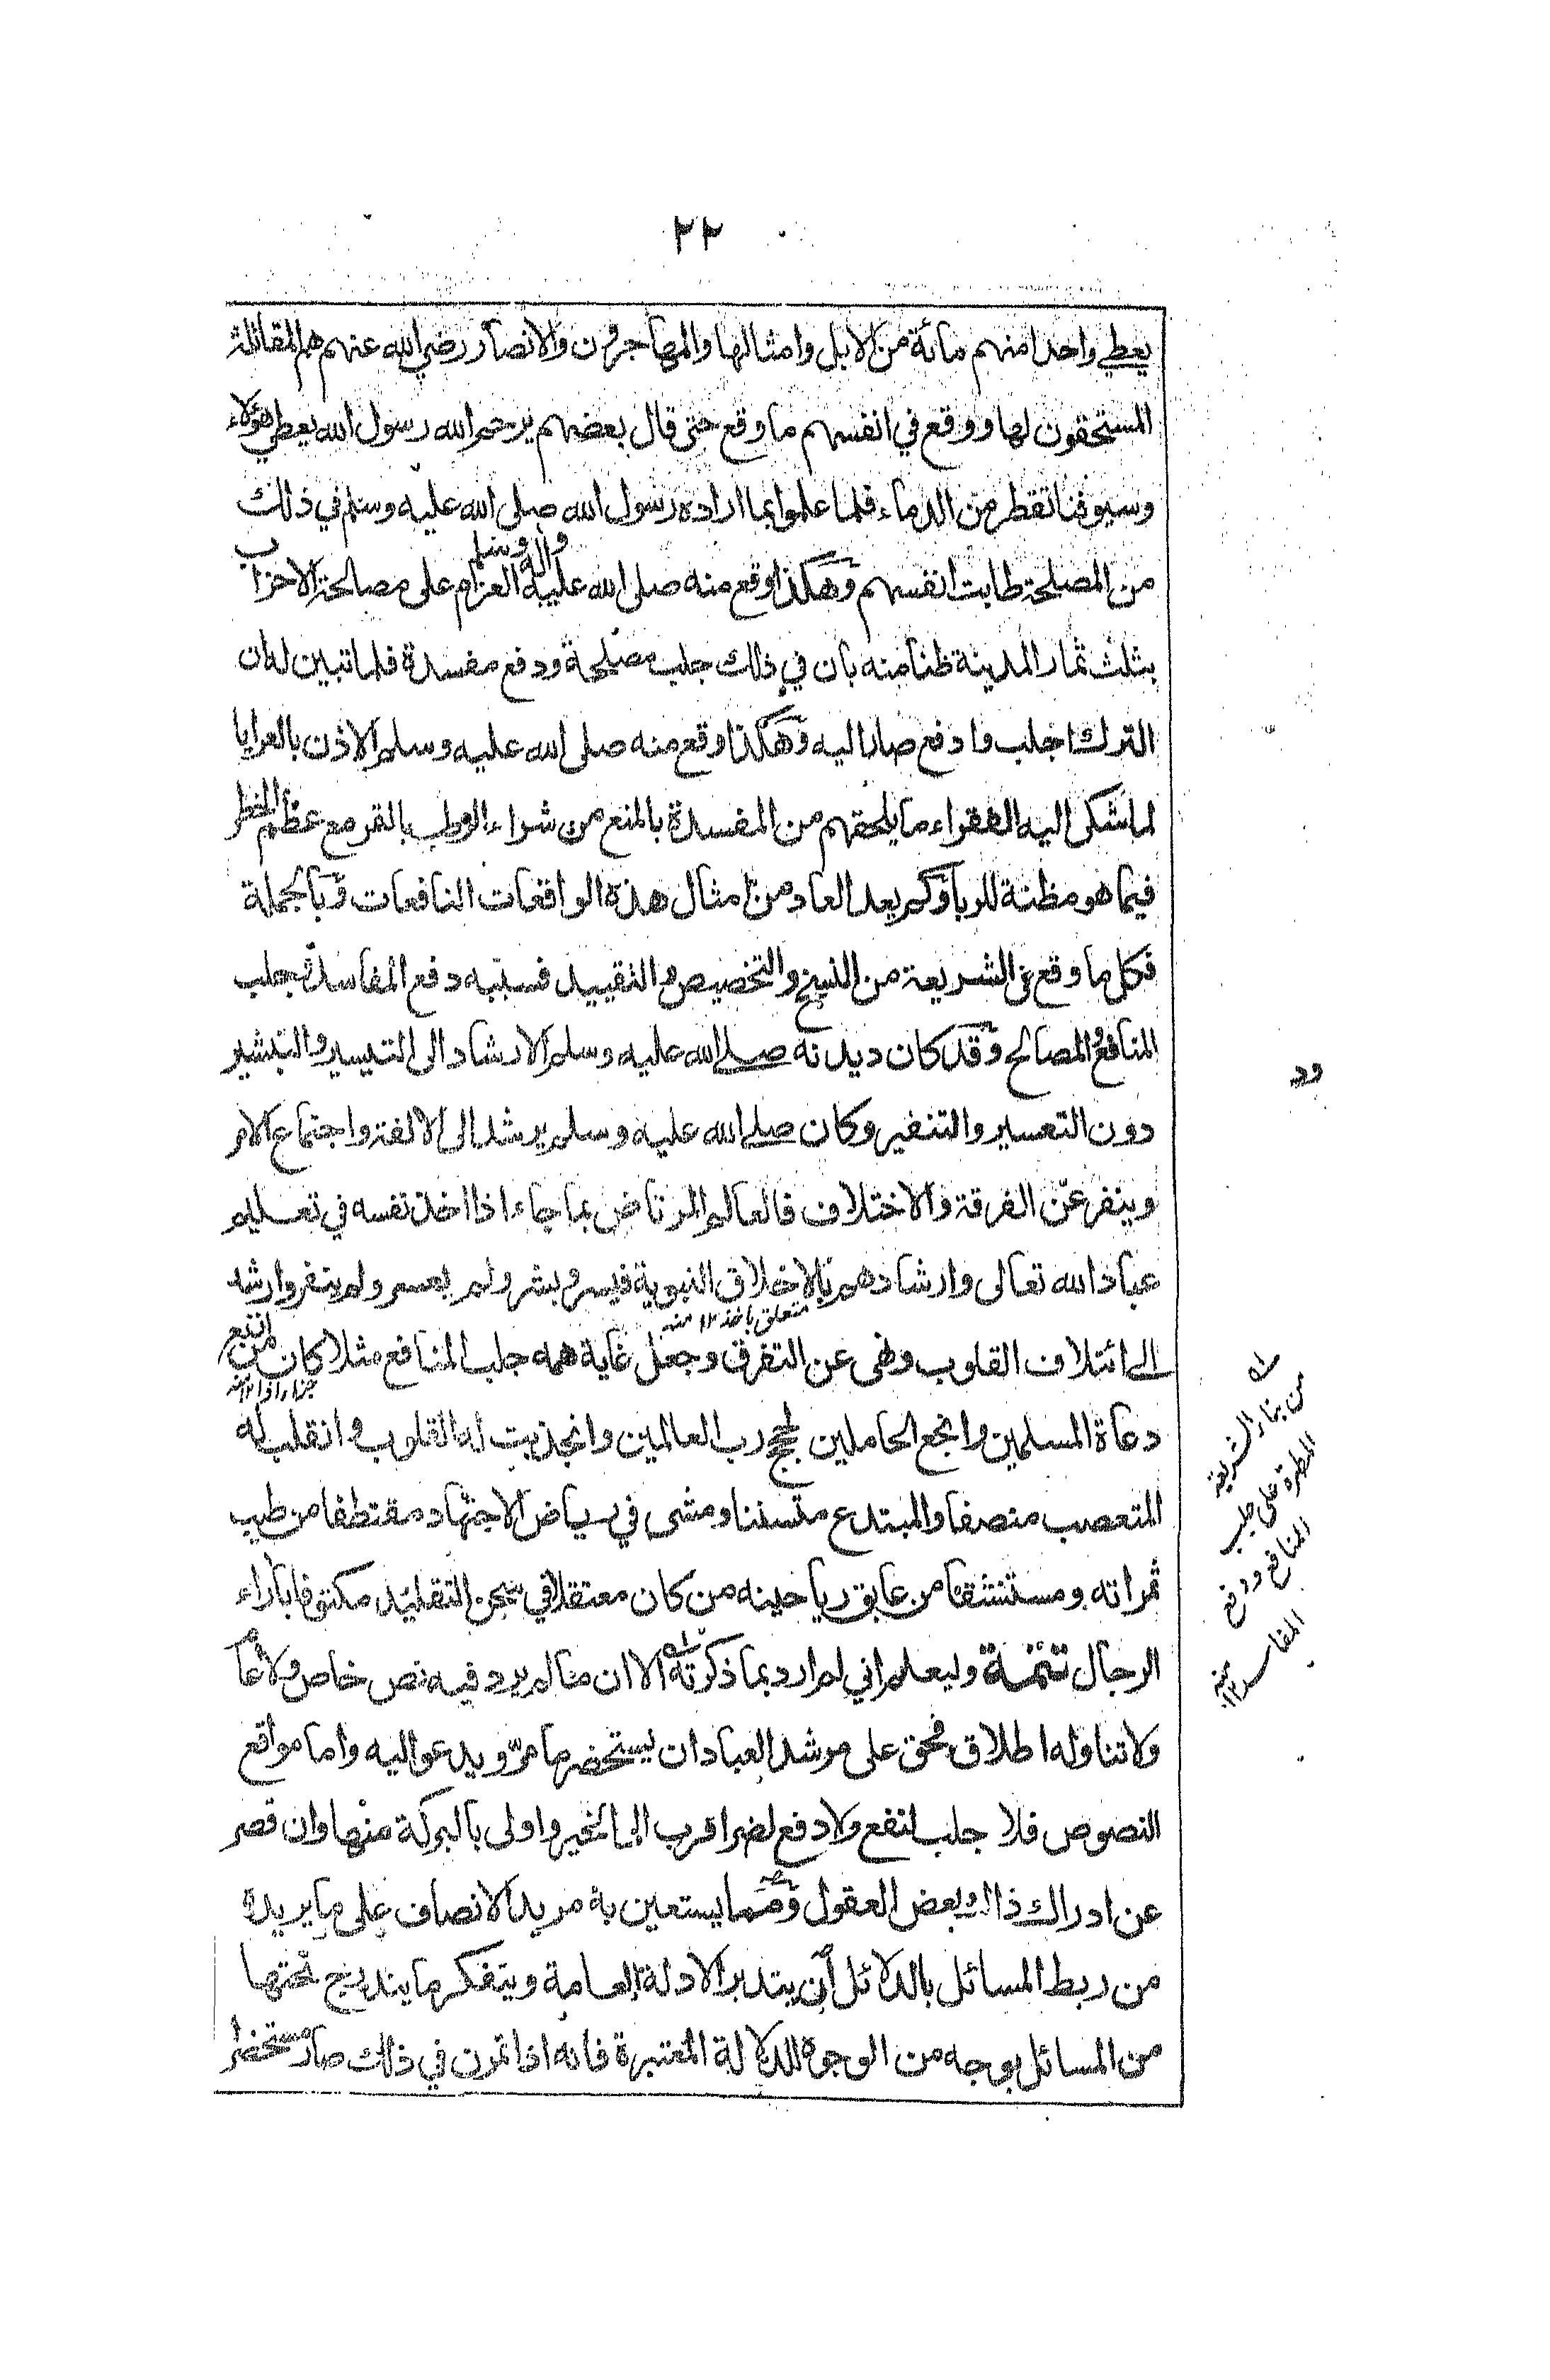 ٢٢
يعطي واحدا منهم مائة من الابل وامثالها والمهاجرون والانصار رضي الله عنهم هم المقاتلة
المستحقون لها ووقع في انفسهم ما وقع حتى قال بعضهم يرحم الله رسول الله يعطي هؤلاء
وسيوفنا تقطر من الدماء فلما علموا بما اراده رسول الله صلى الله عليه وسلم في ذلك
من المصلحة طابت انفسهم وهكذا وقع منه صلى الله عليه واله وسلم العزام على مصالحة الاحزاب
بثلث ثمار المدينة ظنا منه بان في ذلك جلب مصلحة ودفع مفسدة فلما تبين له ان
الترك اجلب وادفع صار اليه وهكذا وقع منه صلى الله عليه وسلم الاذن بالعرايا
لما شكى اليه الفقراء ما يلحقهم من المفسدة بالمنع من شراء الرطب بالتمر مع عظم الخطر
فيما هو مظنة للربا وكم يعد العاد من امثال هذه الواقعات النافعات وبالجملة
فكل ما وقع في الشريعة من النسخ والتخصيص والتقييد فسببه دفع المفاسد وجلب
المنافع والمصالح وقد كان ديدنه صلى الله عليه وسلم الارشاد الى التيسير والتبشير
دون التعسير والتنفير وكان صلى الله عليه وسلم يرشد الى الالفة واجتماع الامر
وينفر عن الفرقة والاختلاف فالعالم المرتاض بما جاء اذا اخذ نفسه في تعليم
عباد الله تعالى وارشادهم بالاخلاق النبوية فيسر وبشر ولم يعسر ولم ينفر وارشد
متعلق باخذ ١٢ منه
الى ائتلاف القلوب ونهى عن التفرق وجعل غاية همه جلب المنافع مثلا كان من انفع
جزاء اذا ١٢ منه
دعاة المسلمين وانجع الحاملين لحجج رب العالمين وانجذبت له القلوب وانقلب له
المتعصب منصفا والمبتدع متسننا ومشى في رياض الاجتهاد مقتطفا من طيب
ثمراته ومستنشقا من عابق رياحينه من كان معتقلا في سجن التقليد مكتوفا باراء
الرجال تتمة وليعلم اني لم ارد بما ذكرته الا ان منا لم يرد فيه نص خاص ولا عام
ولا تناوله اطلاق فحق على مرشد العباد ان يستحضر ما مر ويدعو اليه واما مواقع
النصوص فلا جلب لنفع ولا دفع لضر اقرب الى الخير واولى بالبركة منها وان قصر
عن ادراك ذالك بعض العقول ومما يستعين به مريد الانصاف على ما يريده
من ربط المسائل بالدلائل ان يتدبر الادلة العامة ويتفكر ما يندرج تحتها
من المسائل بوجه من الوجوه للدلالة المعتبرة فانه اذا تمرن في ذلك صار مستحضرا
من بناء الشريعة
المطهرة على جلب
المنافع ودفع
المفاسد ١٢ منه